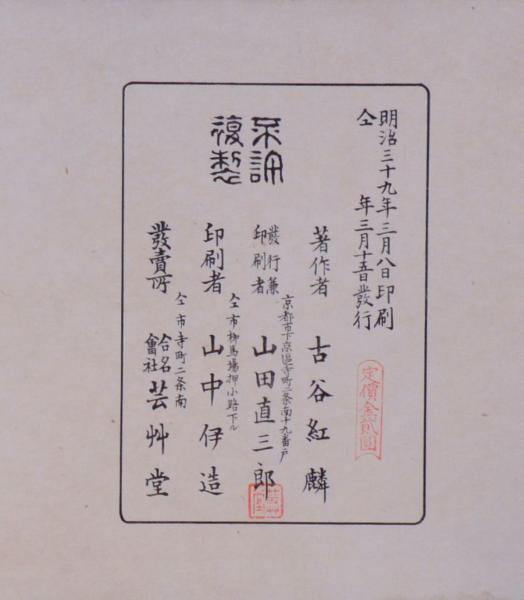 明治三十九年三月八日印刷
仝年三月十五日發行
定價金貳圓
不許
復製
著作者 古谷紅麟
京都市下京區寺町二条南十九番戸
發行兼印刷者 山田直三郎
仝市柳馬場押小路下ル
印刷者 山中伊造
仝市寺町二条南
發賣所 合名會社 芸艸堂